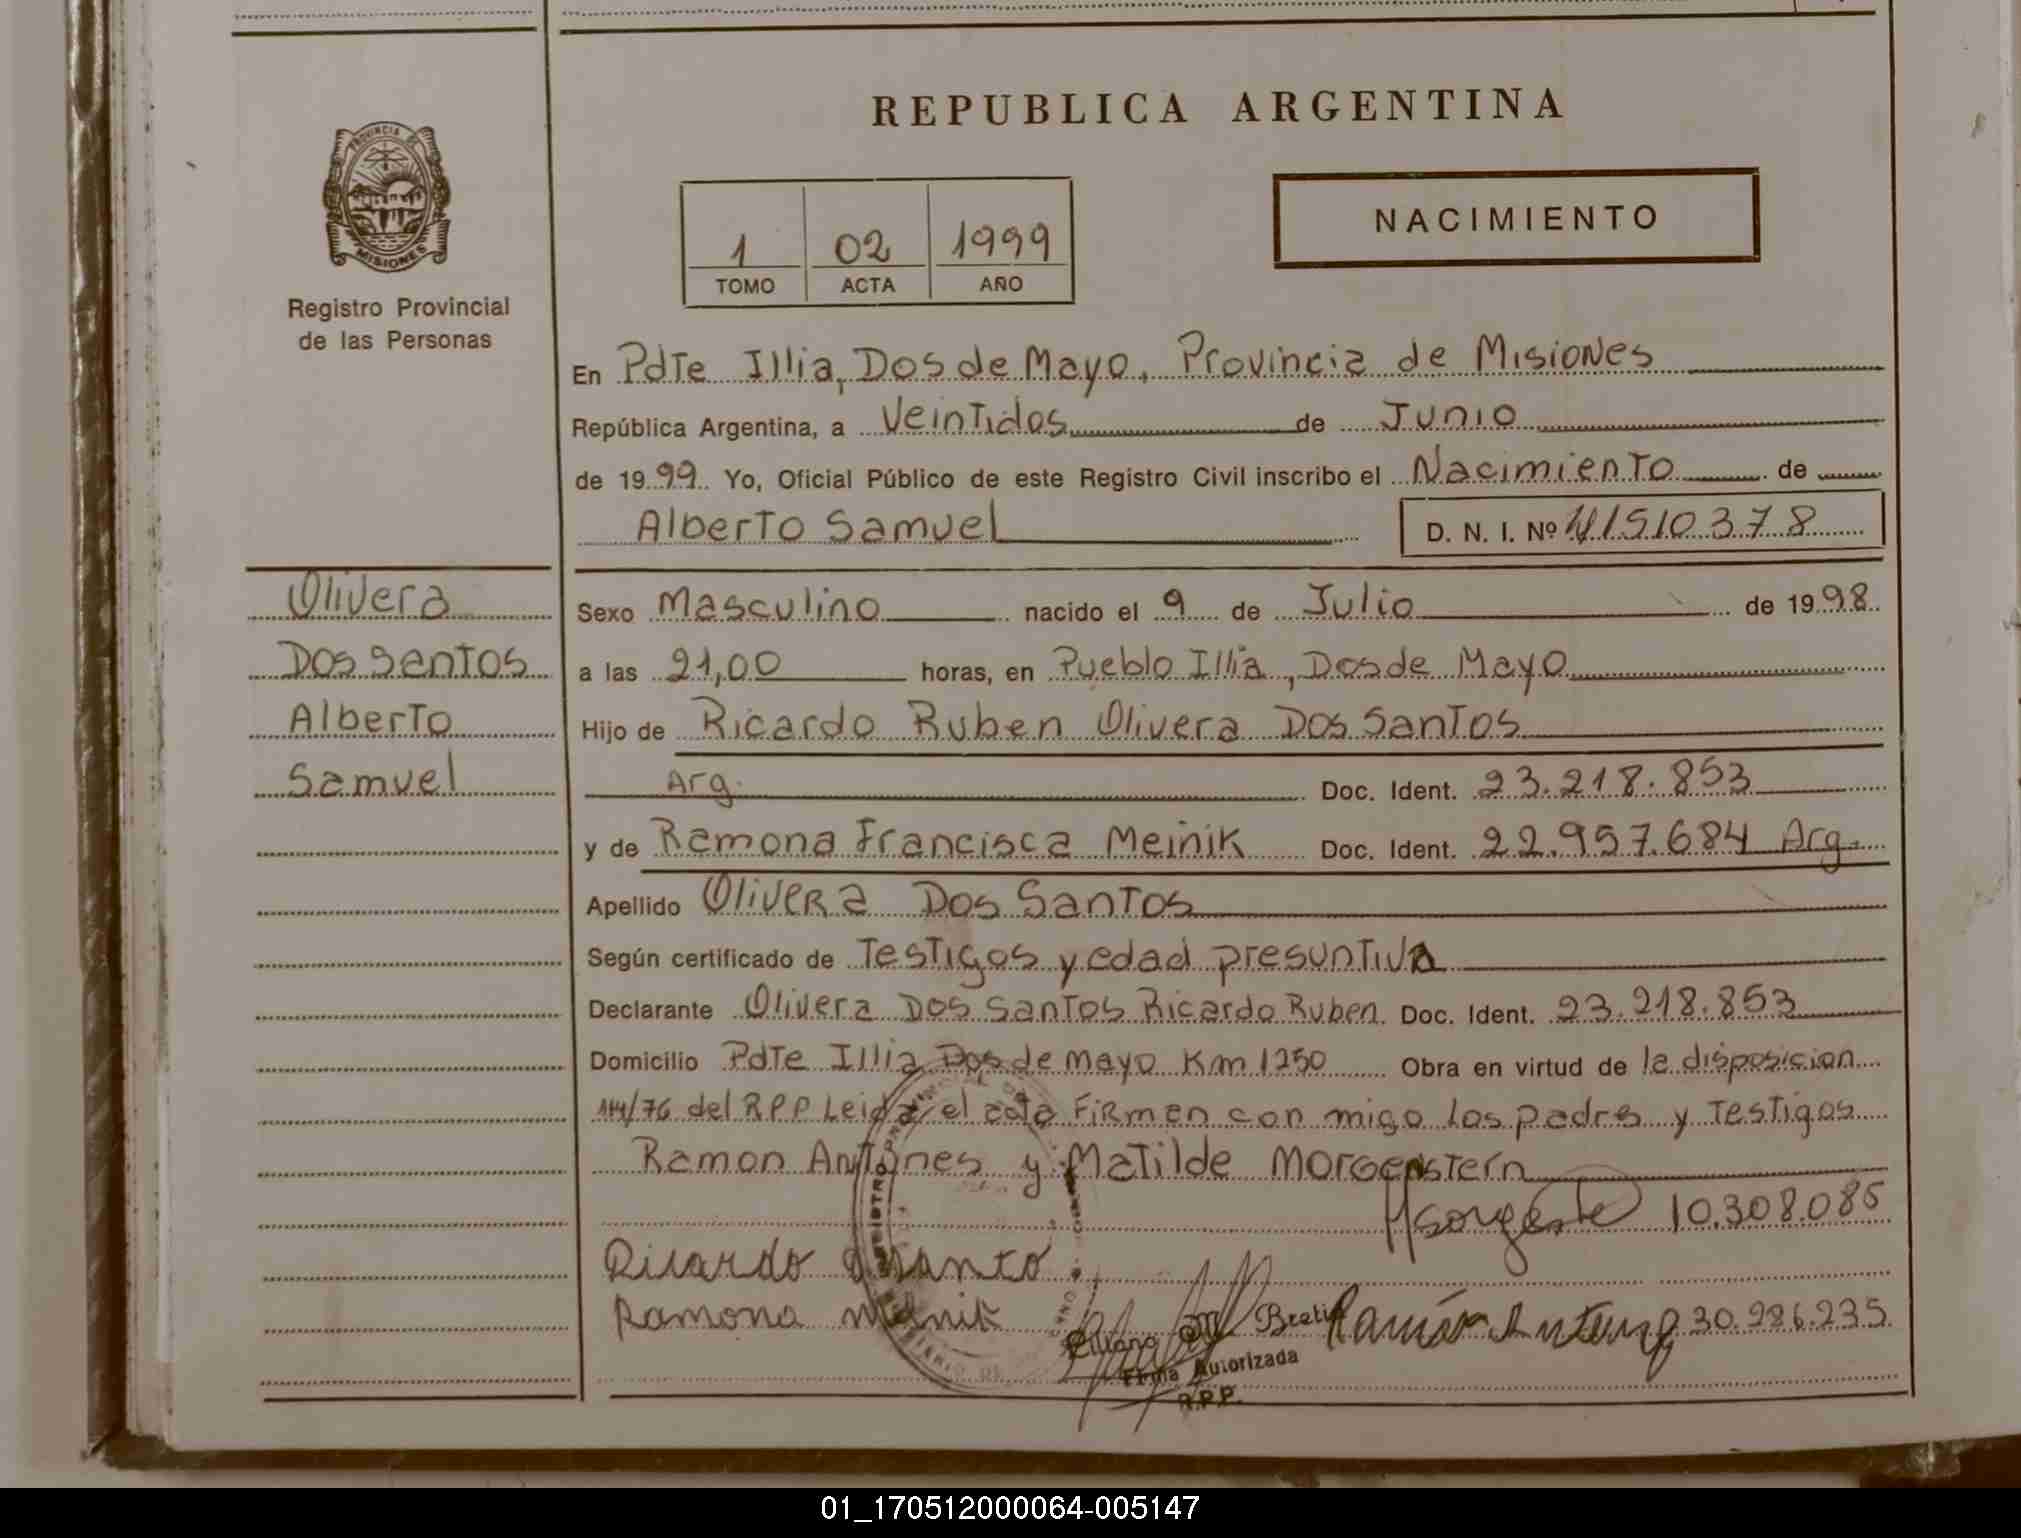 REPUBLICA ARGENTINA
PROVINCIA DE
MISIONES
Registro Provincial
de las Personas
1 02 1999
TOMO ACTA AÑO
NACIMIENTO
En Pdte Illia, Dos de Mayo, Provincia de Misiones
República Argentina, a Veintidos de Junio
de 1999 Yo, Oficial Público de este Registro Civil inscribo el Nacimiento de
Alberto Samuel D. N. I. Nº 41510378
Olivera
Dos Santos
Alberto
Samuel
Sexo Masculino nacido el 9 de Julio de 1998
a las 21,00 horas, en Pueblo Illia, Dos de Mayo
Hijo de Ricardo Ruben Olivera Dos Santos
Arg. Doc. Ident. 23.218.853
y de Ramona Francisca Meinik Doc. Ident. 22.957.684 Arg.
Apellido Olivera Dos Santos
Según certificado de Testigos y edad presuntiva
Declarante Olivera Dos Santos Ricardo Ruben Doc. Ident. 23.218.853
Domicilio Pdte Illia Dos de Mayo Km 1250 Obra en virtud de la disposicion
114/76 del R.P.P Leida el acta Firman con migo Los padres y Testigos
Ramon Antunes y Matilde Morgenstern
10.308.085
Ricardo
Ramona
Ramón 30.286.235
Firma Autorizada
R.P.P.
01_170512000064-005147